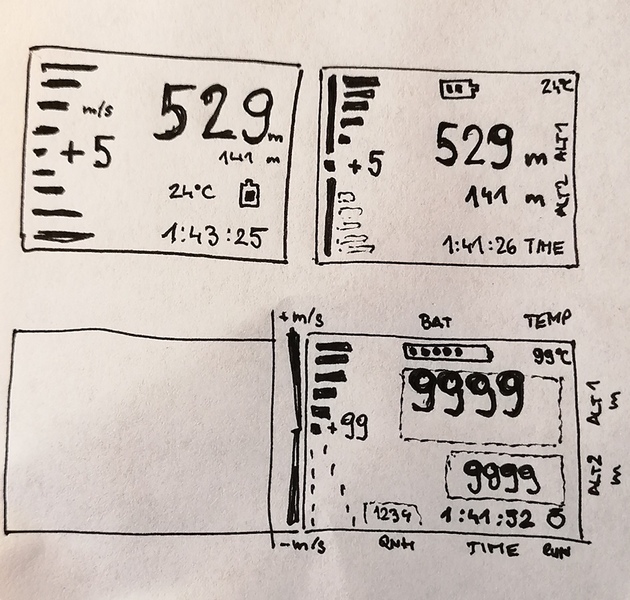 m/s
529 m
141 m
+5
24°C
1:43:25
24°C
529 m ALT1
+5
141 m ALT2
1:41:26 TIME
+m/s
BAT TEMP
99°C
9999
ALT1 m
+99
9999
ALT2 m
1234 1:41:52
-m/s
QNH TIME RUN